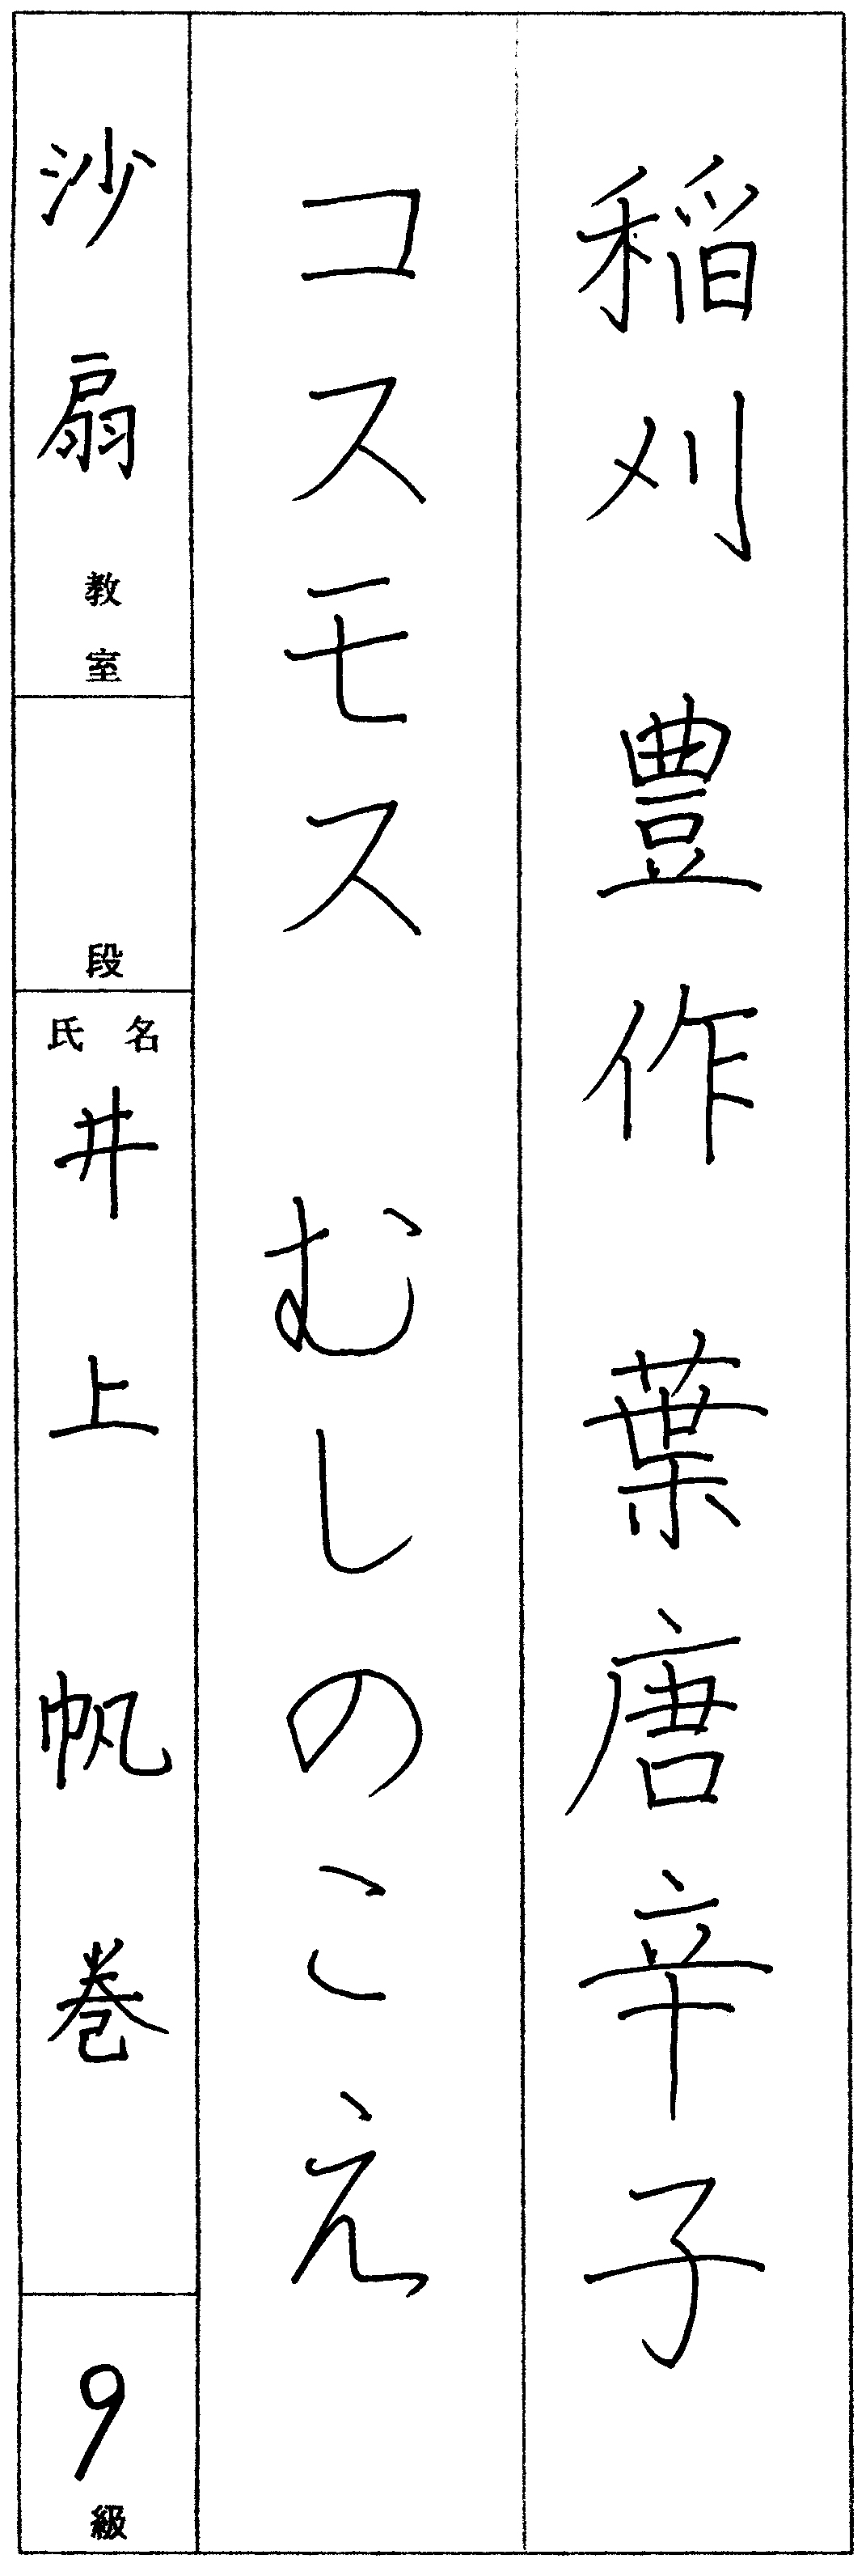 稲刈 豊作 葉唐辛子
コスモス むしのこえ
沙扇教室
段
氏名
井上 帆巻
9級